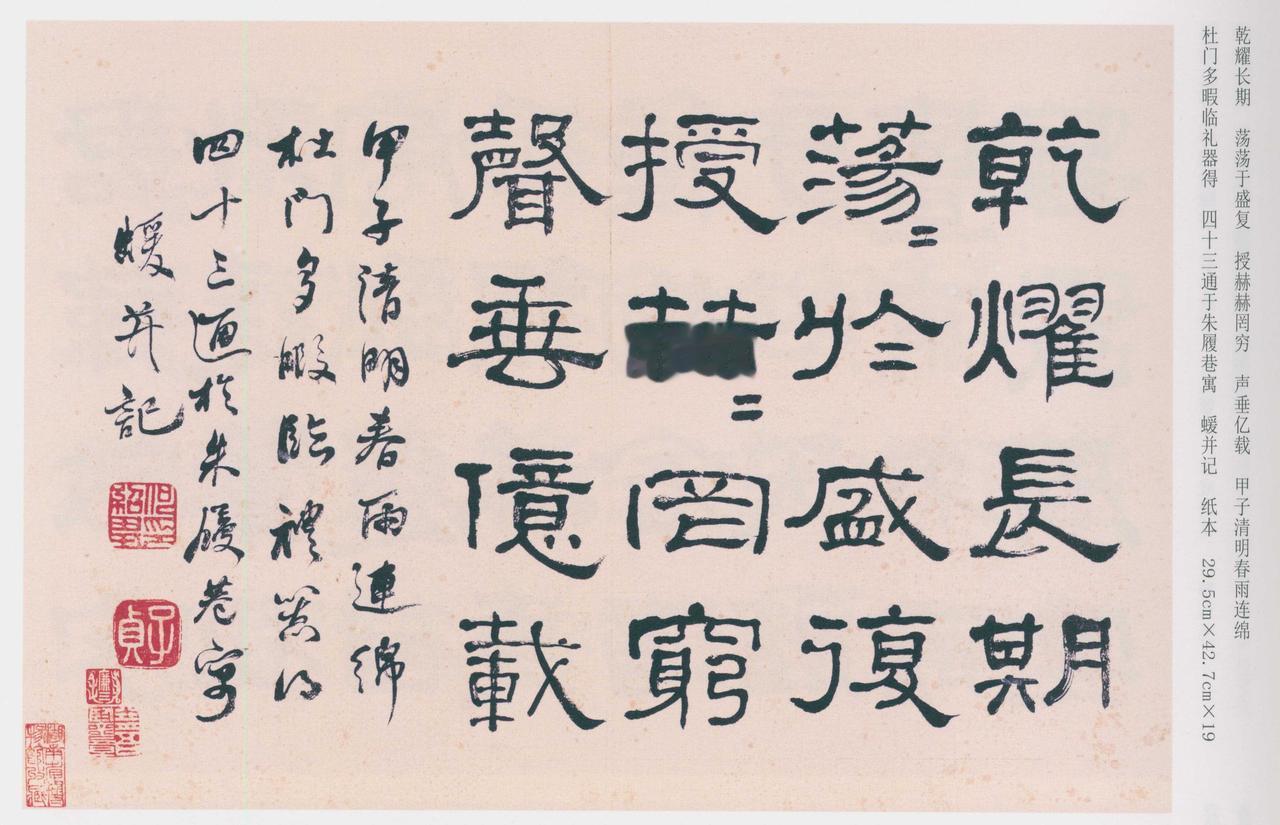 乾耀长期　荡荡于盛复　授赫赫罔穷　声垂亿载　甲子清明春雨连绵
杜门多暇临礼器得　四十三通于朱履巷寓　蝯并记　纸本　29.5cm×42.7cm×19
乾耀長期
蕩〻於盛復
授〻罔窮
聲垂億載
甲子清明春雨連綿
杜門多暇臨禮器得
四十三通於朱履巷寓
蝯并記
何紹基印
子貞